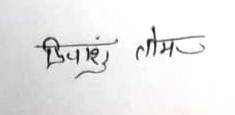 दिपांशु तोमर